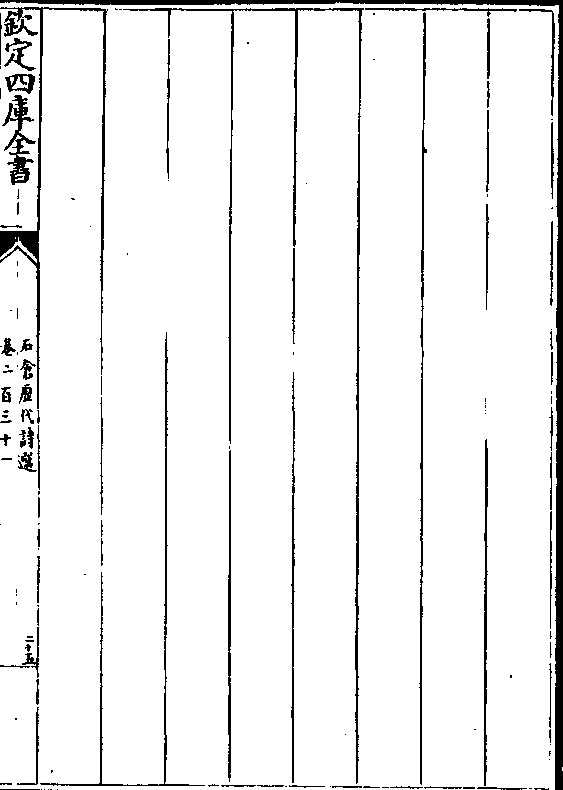 欽定四庫全書
石倉歷代詩選
卷二百三十一
二十五